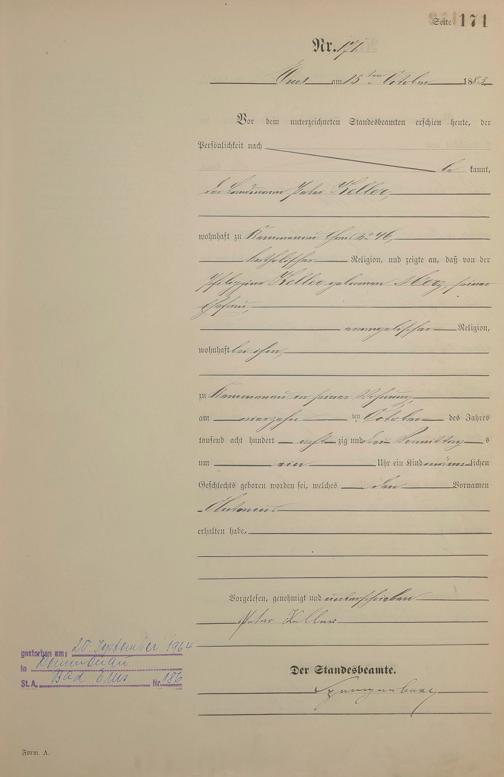 Seite 171
Nr. 171
Ems am 15 ten October 1883
Vor dem unterzeichneten Standesbeamten erschien heute, der
Persönlichkeit nach
be kannt,
der Landmann Peter Keller,
wohnhaft zu Kemmenau No 46,
katholischer Religion, und zeigte an, daß von der
Philippine Keller geborenen seiner
Ehefrau,
evangelischer Religion,
wohnhaft bei ihm,
zu Kemmenau in seiner Wohnung,
am vierzehn ten October des Jahres
tausend acht hundert acht zig und drei Vormittag s
um ein Uhr ein Kind männ lichen
Geschlechts geboren worden sei, welches den Vornamen
erhalten habe.
Vorgelesen, genehmigt und unterschrieben
Peter Keller
Der Standesbeamte.
Spangenberg
gestorben am: 20. September 1964
in Kemmenau
St. A. Bad Ems Nr. 186
Form. A.